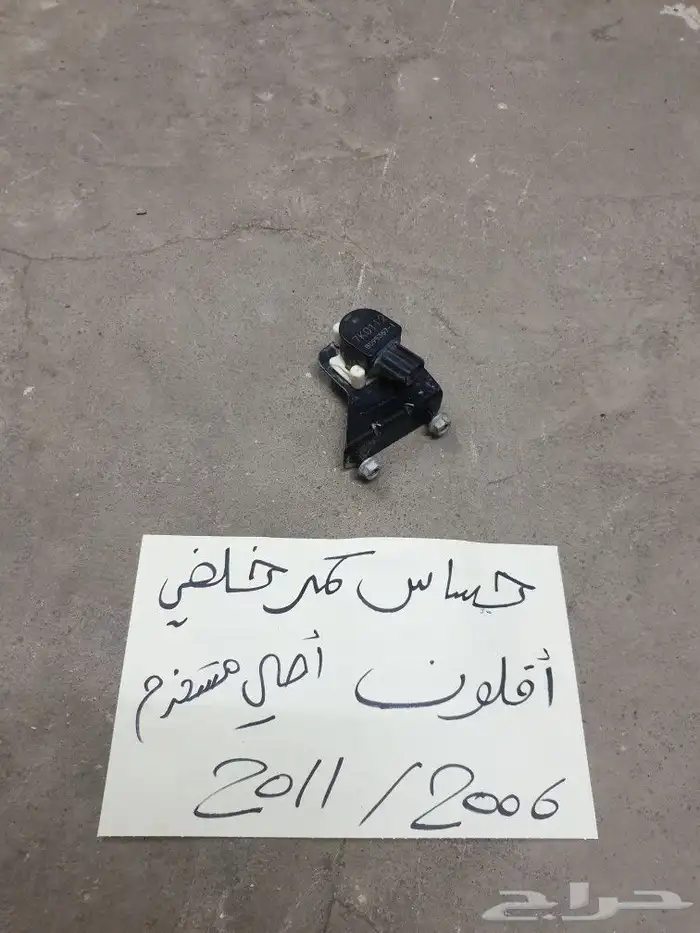 7K01-12
حساس كمر خلفي
أفلون أصلي مستخدم
2011/2006
حراج